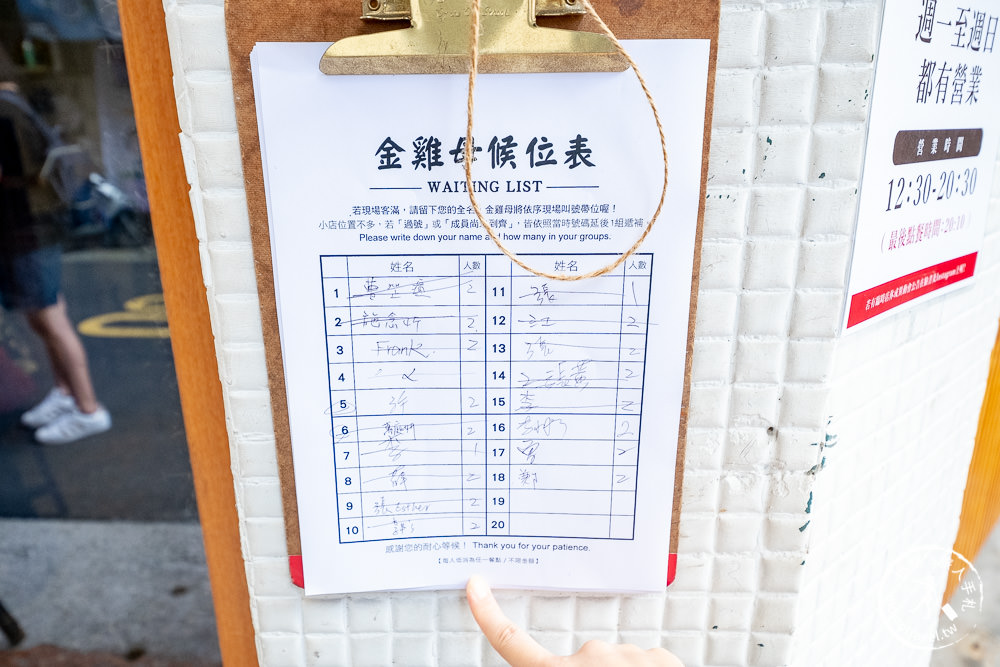 金雞母候位表
WAITING LIST
若現場客滿,請留下您的全名,金雞母將依序現場叫號帶位喔!
小店位置不多,若「過號」或「成員尚未到齊」,皆依照當時號碼延後1組遞補
Please write down your name and how many in your groups.
姓名 人數 姓名 人數
1 2 11 張 1
2 2 12 江 2
3 Frank. 2 13 2
4 14 黃 2
5 許 2 15 李 2
6 2 16 2
7 李 1 17 曾 2
8 薛 2 18 鄭 2
9 張Esther 2 19
10 2 20
感謝您的耐心等候! Thank you for your patience.
【每人低消為任一餐點/不限金額】
週一至週日
都有營業
營業時間
12:30-20:30
(最後點餐時間:20:10)